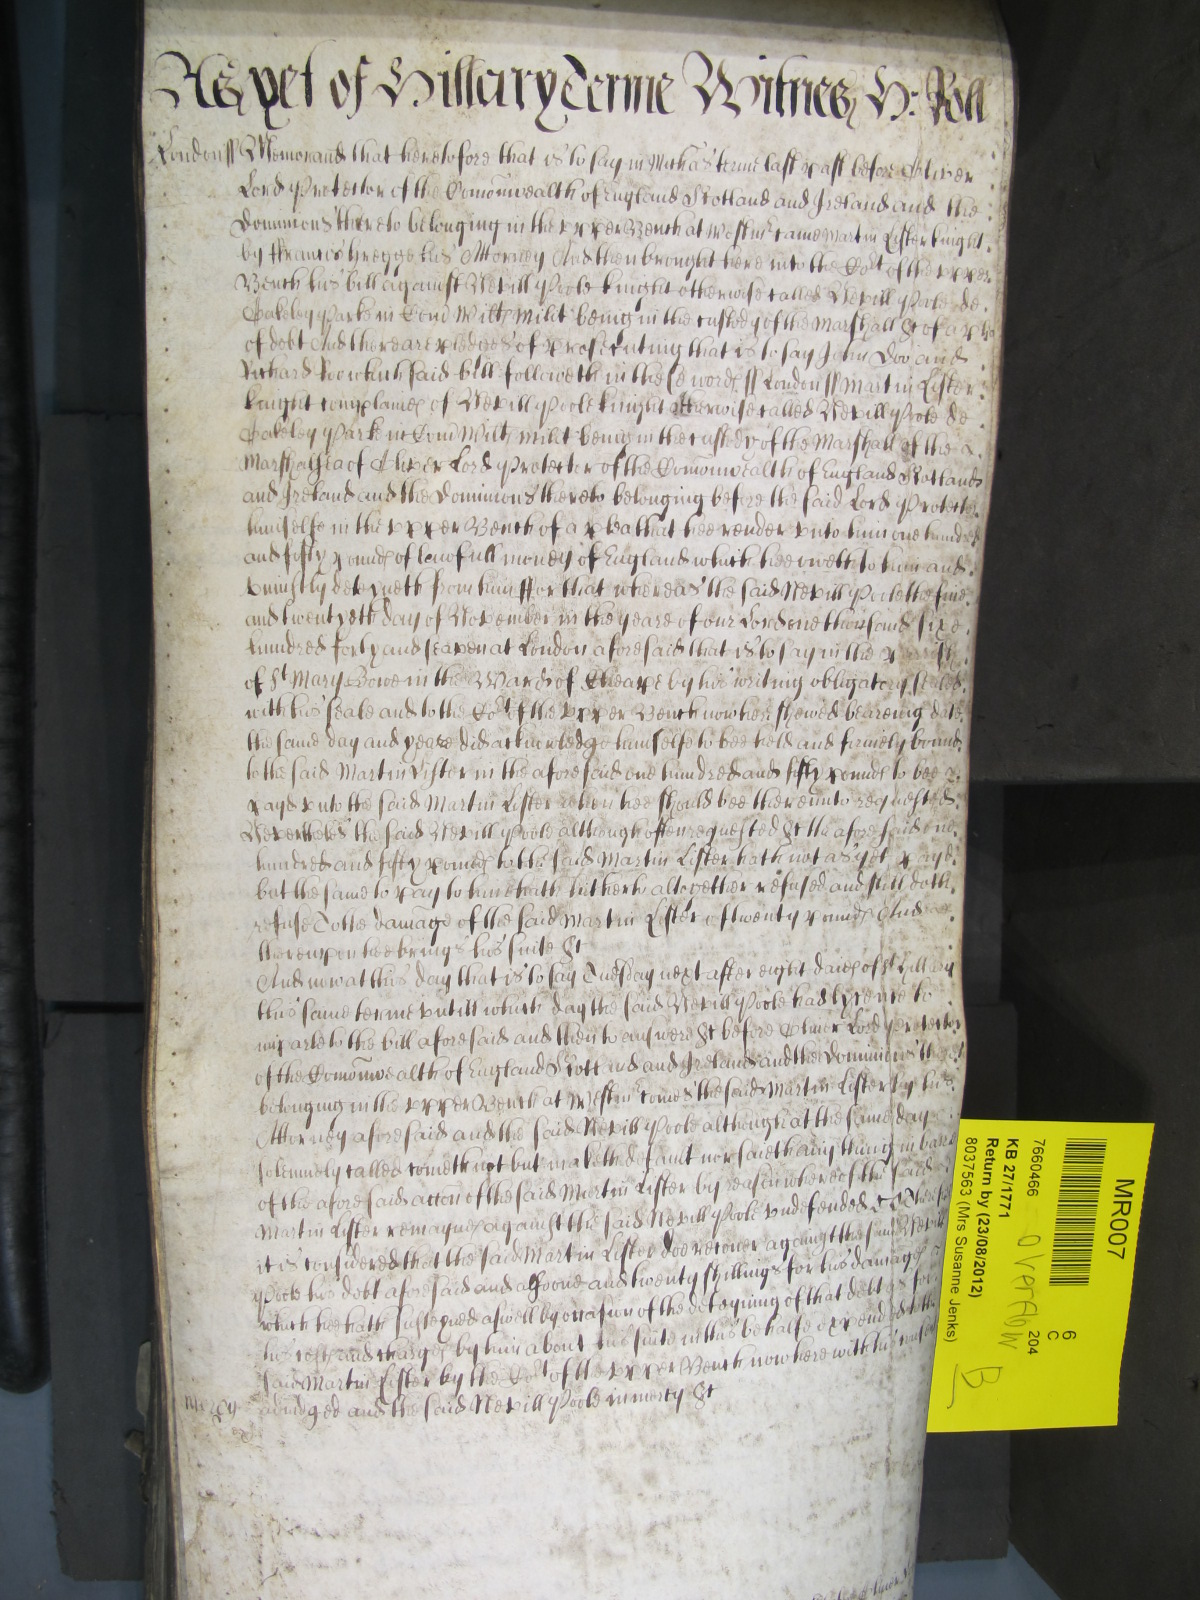 As yet of Hillary Terme Witnes H: Roll
London ss Memorand that heretofore that is to say in Michās terme last past before Oliver
Lord Protector of the Comonwealth of England Scotland and Ireland and the
Dominions thereto belonging in the upper Bench at Westmr came Martin Lister knight
by Francis Gregge his Attorney And then brought here into the Cort of the upper
Bench his bill against Nevill Poole knight otherwise called Nevill Poole de
Oakeley Parke in Com Wiltꝭ milit being in the custody of the Marshall &c of a plea
of debt And there are pledges of prosecuting that is to say John Doo and
Richard Roo which said bill followeth in these wordꝭ ss London ss Martin Lister
knight complaineꝭ of Nevill Poole knight otherwise called Nevill Poole de
Oakeley Parke in Com Wiltꝭ milit being in the custody of the Marshall of the
Marshalsea of Oliver Lord Protector of the Comonwealth of England Scotland
and Ireland and the Dominions thereto belonging before the said Lord Protector
himselfe in the upper Bench of a plea that hee render unto him one hundred
and fifty poundꝭ of lawfull money of England which hee oweth to him and
uniustly deteyneth from him For that whereas the said Nevill Poole the five
and twentyeth day of November in the yeare of our Lord one thousand sixe
hundred forty and seaven at London aforesaid that is to say in the parish
of St Mary Bowe in the Ward of Cheape by his writing obligatory sealed
with his seale and to the Cort of the upper Bench now here shewed beareing date
the same day and yeare did acknowledge himselfe to bee held and firmely bound
to the said Martin Lister in the aforesaid one hundred and fifty poundꝭ to bee
payd unto the said Martin Lister when hee should bee thereunto requested
Neverthelesse the said Nevill Poole although often requested &c the aforesaid one
hundred and fifty poundꝭ to the said Martin Lister hath not as yet payd
but the same to pay to him hath hitherto altogether refused and still doth
refuse To the damage of the said Martin Lister of twenty poundꝭ And
thereupon hee brings his suite &c
And now at this day that is to say Tuesday next after eight daies of St Hillary
this same terme untill which day the said Nevill Poole had lycence to
imparle to the bill aforesaid and then to answere &c before Oliver Lord Protector
of the Comonwealth of England Scotland and Ireland and the Dominions thereto
belonging in the upper Bench at Westmr comes the said Martin Lister by his
Attorney aforesaid and the said Nevill Poole although at the same day
solemnely called cometh not but maketh default nor saith any thing in barre
of the aforesaid accon of the said Martin Lister by reason whereof the said
Martin Lister remayneꝭ against the said Nevill Poole undefended &c Therefore
it is considered that the said Martin Lister doe recover against the said Nevill
Poole his debt aforesaid and alsoe one and twenty shillings for his damageꝭ
which hee hath susteyned aswell by occasion of the deteyning of that debt as for
his costꝭ and chargeꝭ by him about his suite in this behalfe expended to the
said Martin Lister by the Cort of the upper Bench now here with his assent
Mercy adiudged and the said Nevill Poole in mercy &c
MR007
6
C
204
7660466 overflow
KB 27/1771
Return by (23/08/2012)
8037563 (Mrs Susanne Jenks)
B